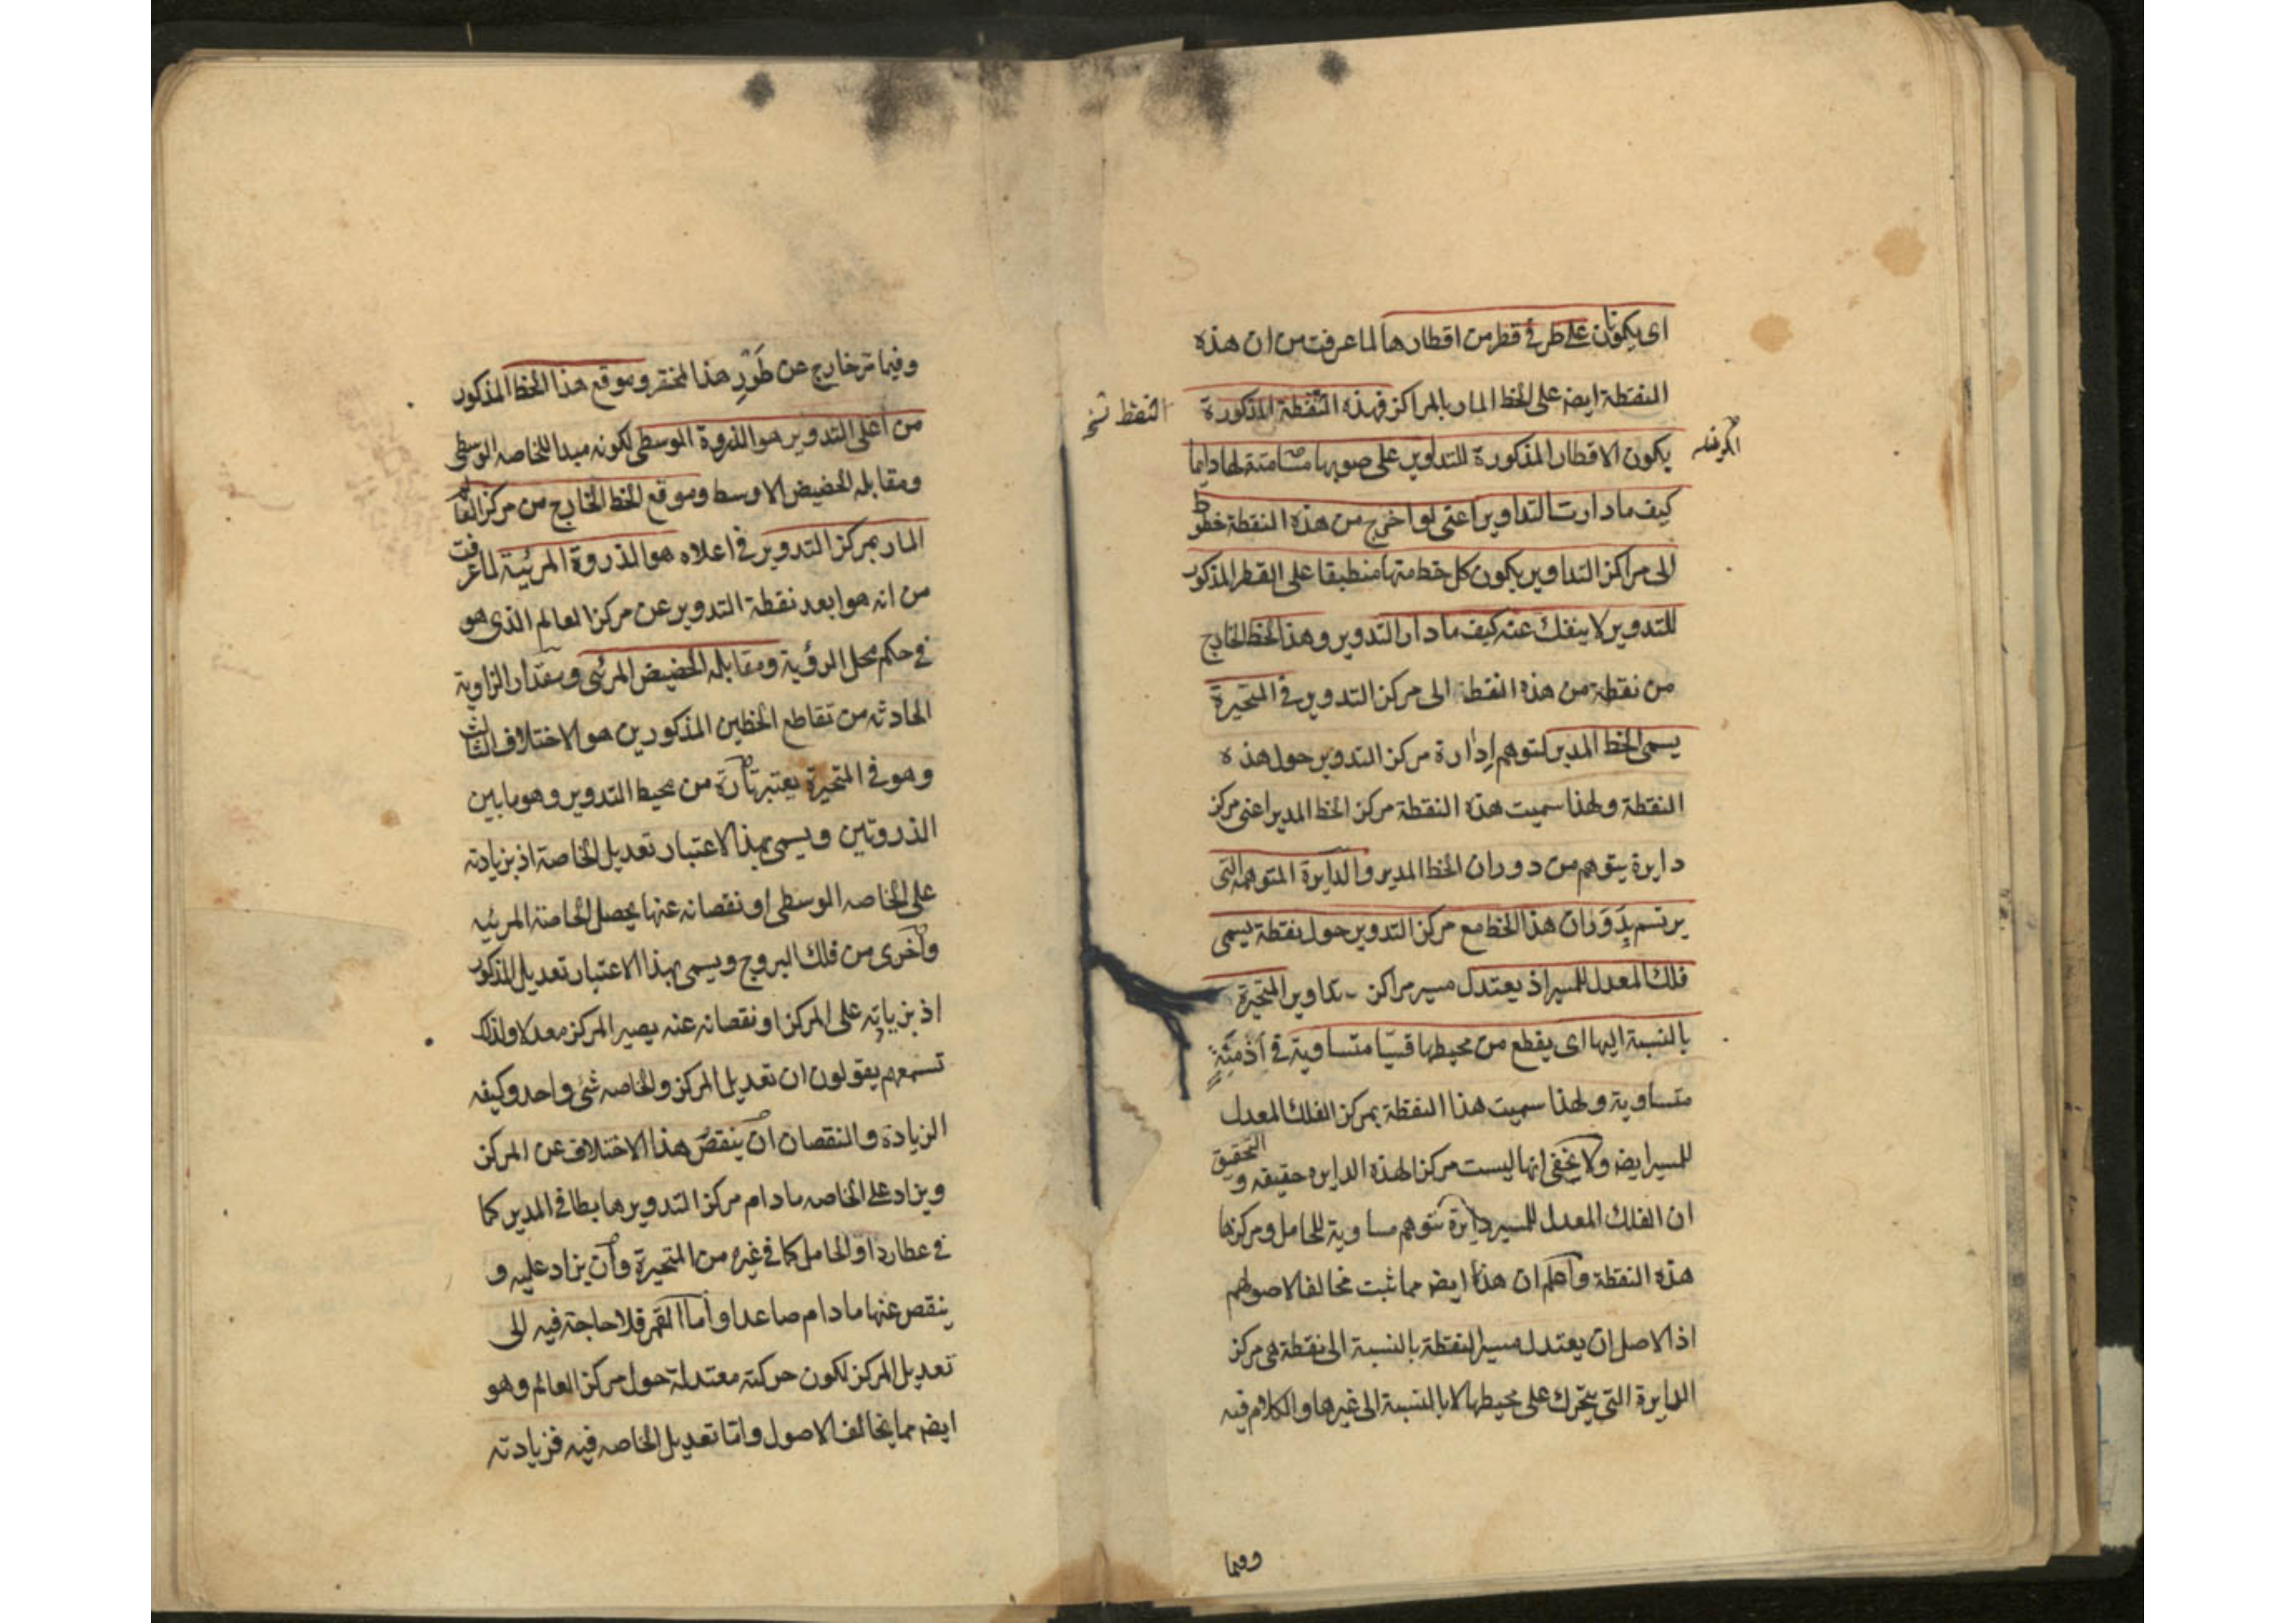 اى يكونان على طرفى قطر من اقطارها لما عرفت من ان هذه
النقطة ايضه على الخط المار بالمراكز فهذه النقطة المذكورة
النقط نخ
يكون الاقطار المذكورة للتداوير على صوبها مسامتة لها دايما
كيف ما دارت التداوير اعنى لو اخرج من هذه النقطة خطوط
الى مراكز التداوير يكون كل خط منها منطبقا على القطر المذكور
للتدوير لا ينفك عنه كيف ما دار التدوير وهذا الخط الخارج
من نقطة من هذه النقطة الى مركز التدوير فى المتحيرة
يسمى الخط المدير لتوهم إدارة مركز التدوير حول هذه
النقطة ولهذا سميت هذه النقطة مركز الخط المدير اعنى مركز
دايرة يتوهم من دوران الخط المدير والدايرة المتوهمه التى
يرتسم بِدَوَران هذا الخط مع مركز التدوير حول نقطة يسمى
فلك المعدل للمسير اذ يعتدل مسير مراكز تداوير المتحيرة
بالنسبة اليها اى يقطع من محيطها قسيّا متساوية فى أزمنَةٍ
متساوية ولهذا سميت هذا النقطة بمركز الفلك المعدل
للمسير ايضه ولا يخفى انها ليست مركزا لهذه الدايره حقيقه و التحقيق
ان الفلك المعدل للمسير دايرة تتوهم مساوية للحامل ومركزها
هذه النقطة واعلم ان هذا ايضه مما ثبت مخالفا لاصولهم
اذ الاصل ان يعتدل مسير النقطة بالنسبة الى نقطة هى مركز
الدايرة التى يتحرك على محيطها لا بالنسبة الى غيرها والكلام فيه
وفيما
وفيما تر خارج عن طَوْرِ هذا المختصر وموقع هذا الخط المذكور
من اعلى التدوير هو الذروة الوسطى لكونه مبدا للخاصه الوسطى
ومقابله الحضيض الاوسط وموقع الخط الخارج من مركز العالم
المار بمركز التدوير فى اعلاه هو الذروة المرئية لما عرفت
من انه هو ابعد نقطة التدوير عن مركز العالم الذى هو
فى حكم محل الرؤية ومقابله الحضيض المرئى ومقدار الزاوية
الحادثه من تقاطع الخطين المذكورين هو الاختلاف الثالث
وهو فى المتحيرة يعتبر تارة من محيط التدوير وهو ما بين
الذروتين ويسمى بهذا الاعتبار تعديل الخاصة اذ بزيادته
على الخاصه الوسطى او نقصانه عنها يحصل الخاصة المرئيه
واخرى من فلك البروج ويسمى بهذا الاعتبار تعديل المذكور
اذ بزياته على المركز او نقصانه عنه يصير المركز معدلا ولذلك
تسمعهم يقولون ان تعديل المركز والخاصه شئ واحد وكيفه
الزيادة والنقصان ان ينقص هذا الاختلاف عن المركز
ويزاد على الخاصه ما دام مركز التدوير هابطا فى المدير كما
فى عطارد او الحامل كما فى غيره من المتحيرة وان يزاد عليه و
ينقص عنها ما دام صاعدا واما القمر فلا حاجة فيه الى
تعديل المركز لكون حركته معتدلة حول مركز العالم وهو
ايضه مما يخالف الاصول وامّا تعديل الخاصه فيه فزيادته